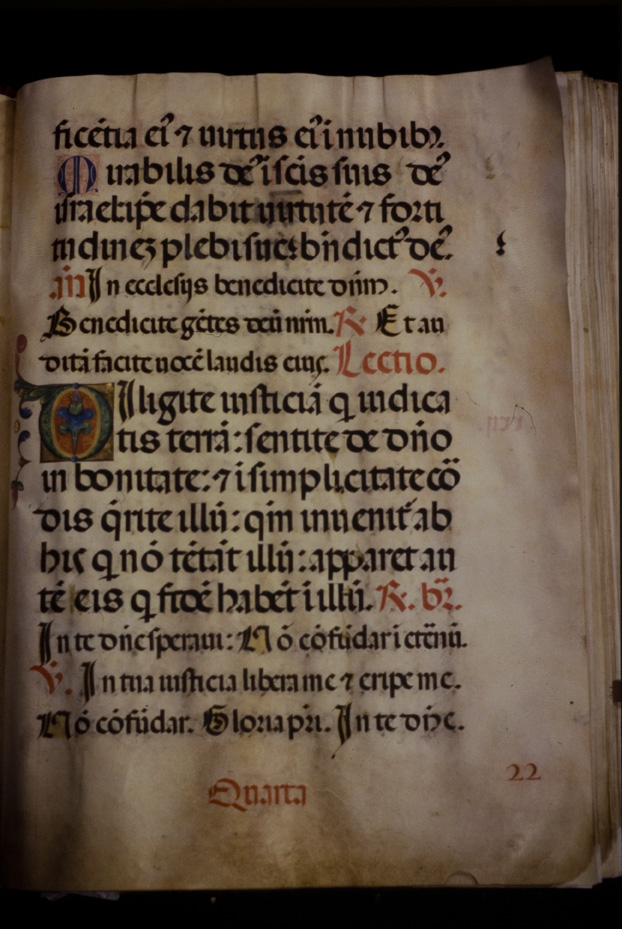 ficẽtia ei᷒ ⁊ uirtus ei᷒ i nubibꝫ.
Mirabilis de᷒ i scis suis de᷒
israel ip̃e dabit uirtutẽ ⁊ forti
tudinẽ plebi sue: bñdict᷒ de᷒.
añ In ecclesijs benedicite dño. ℣.
Benedicite gẽtes deũ nr̃m. ℟. Et au
ditã facite uocẽ laudis eius. Lectio.
Diligite iusticiã q̃ iudica
tis terrã: sentite de dño
in bonitate: ⁊ i simplicitate cõ
dis q̃rite illũ: qm̃ inuenit᷒ ab
his q̃ nõ tẽtãt illũ: apparet au
tẽ eis q̃ fidẽ habẽt i illũ. ℟. br̃.
In te dñe speraui: Nõ cõfũdar i eternũ.
℣. In tua iusticia libera me ⁊ eripe me.
Nõ cõfũdar. Gloria pr̃i. In te dñe.
22
Quarta